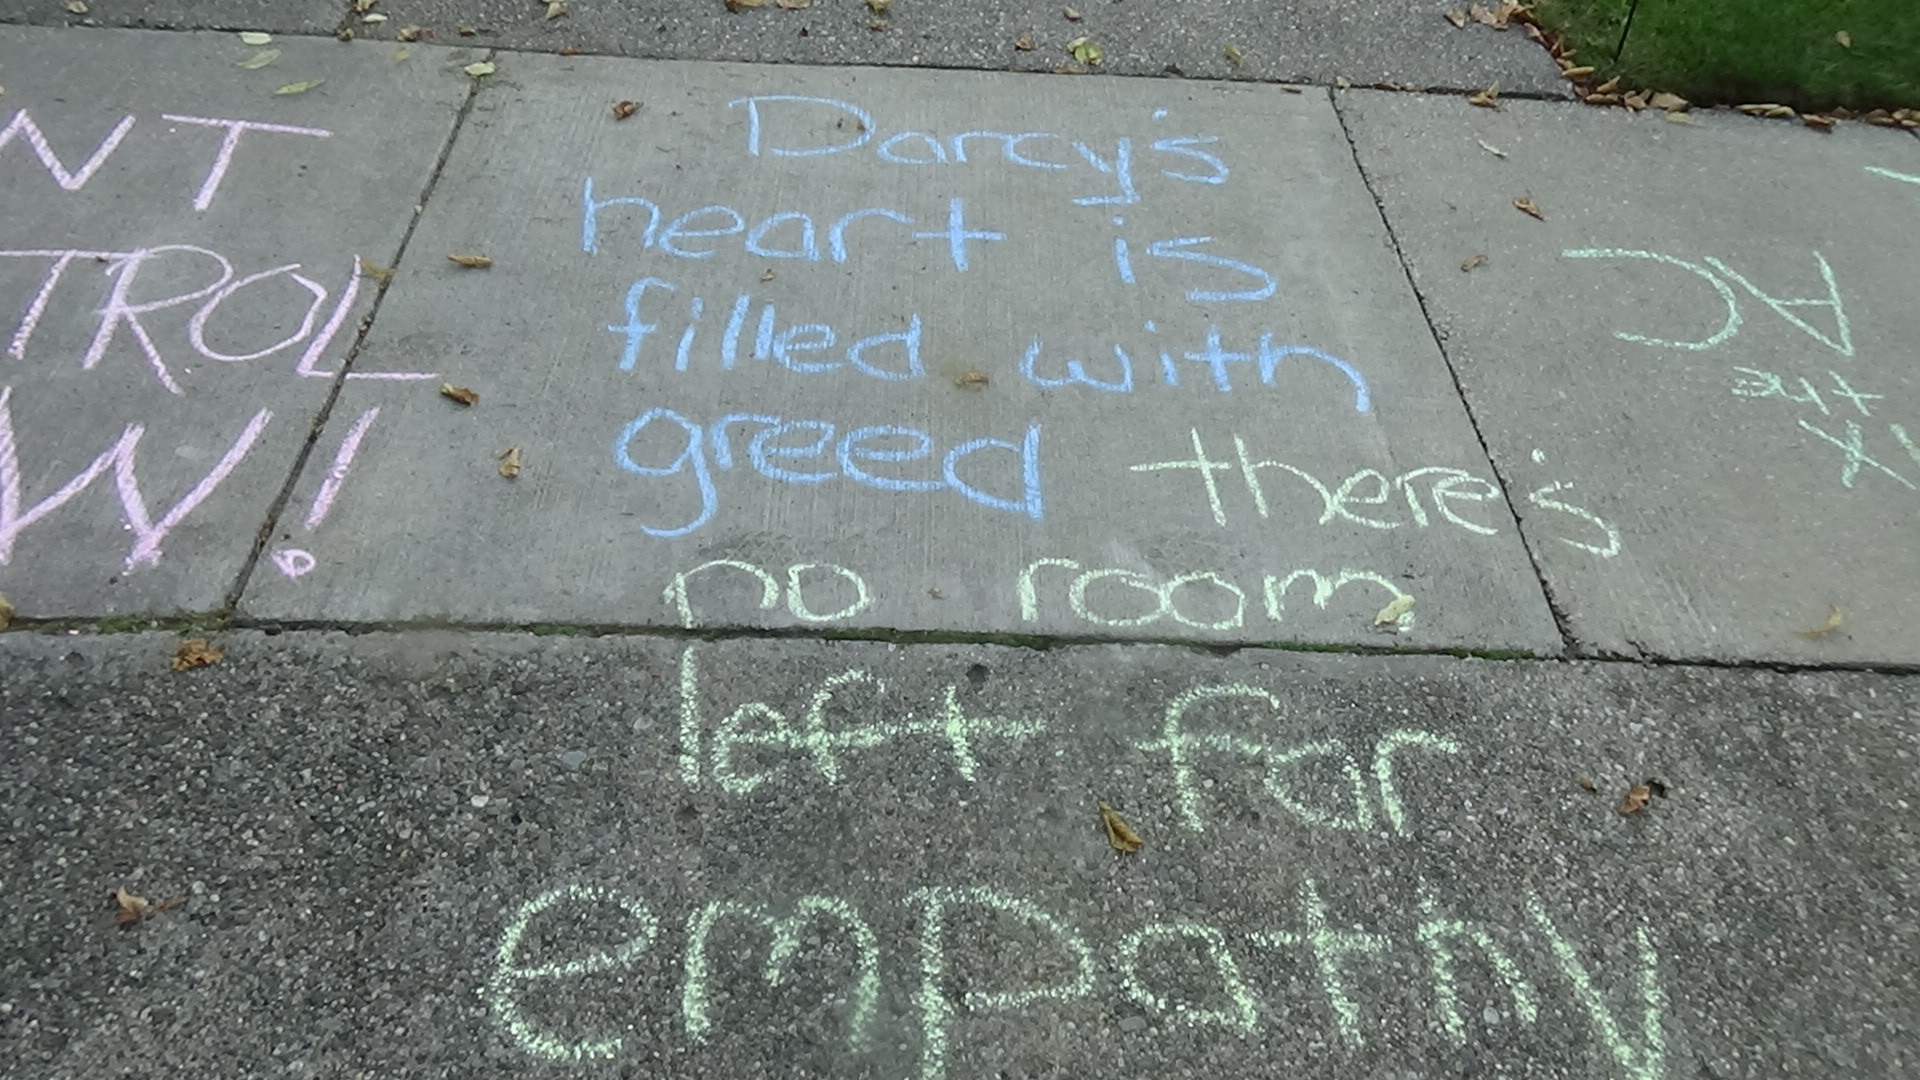 NT
TROL
W!
Darcy's
heart is
filled with
greed there's
no room
left for
empathy
AC
the